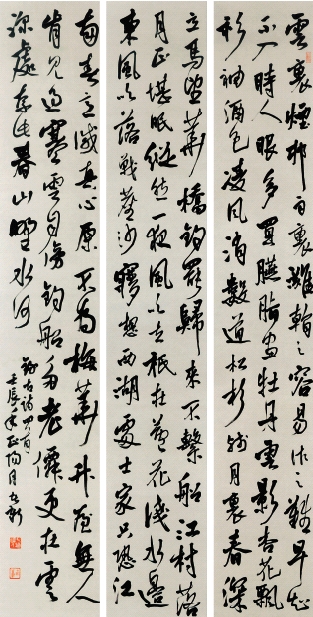 雲裏煙村雨裏灘看之容易作之難早知
不入時人眼多買臙脂畫牡丹雲影杏花飄
袖酒色凌風消道松杉殘月裏春深
立馬望華橋釣罷歸來不繫船江村落
月正堪眠縱然一夜風吹去祇在蘆花淺水邊
東風吹落戰塵沙夢想西湖處士家只恐江
南春意減此心原不為梅華升無人
肯見過寒雲自傍釣船多老僧更在雲
深處春山野水何
錄古詩四首
壬辰年正陽月